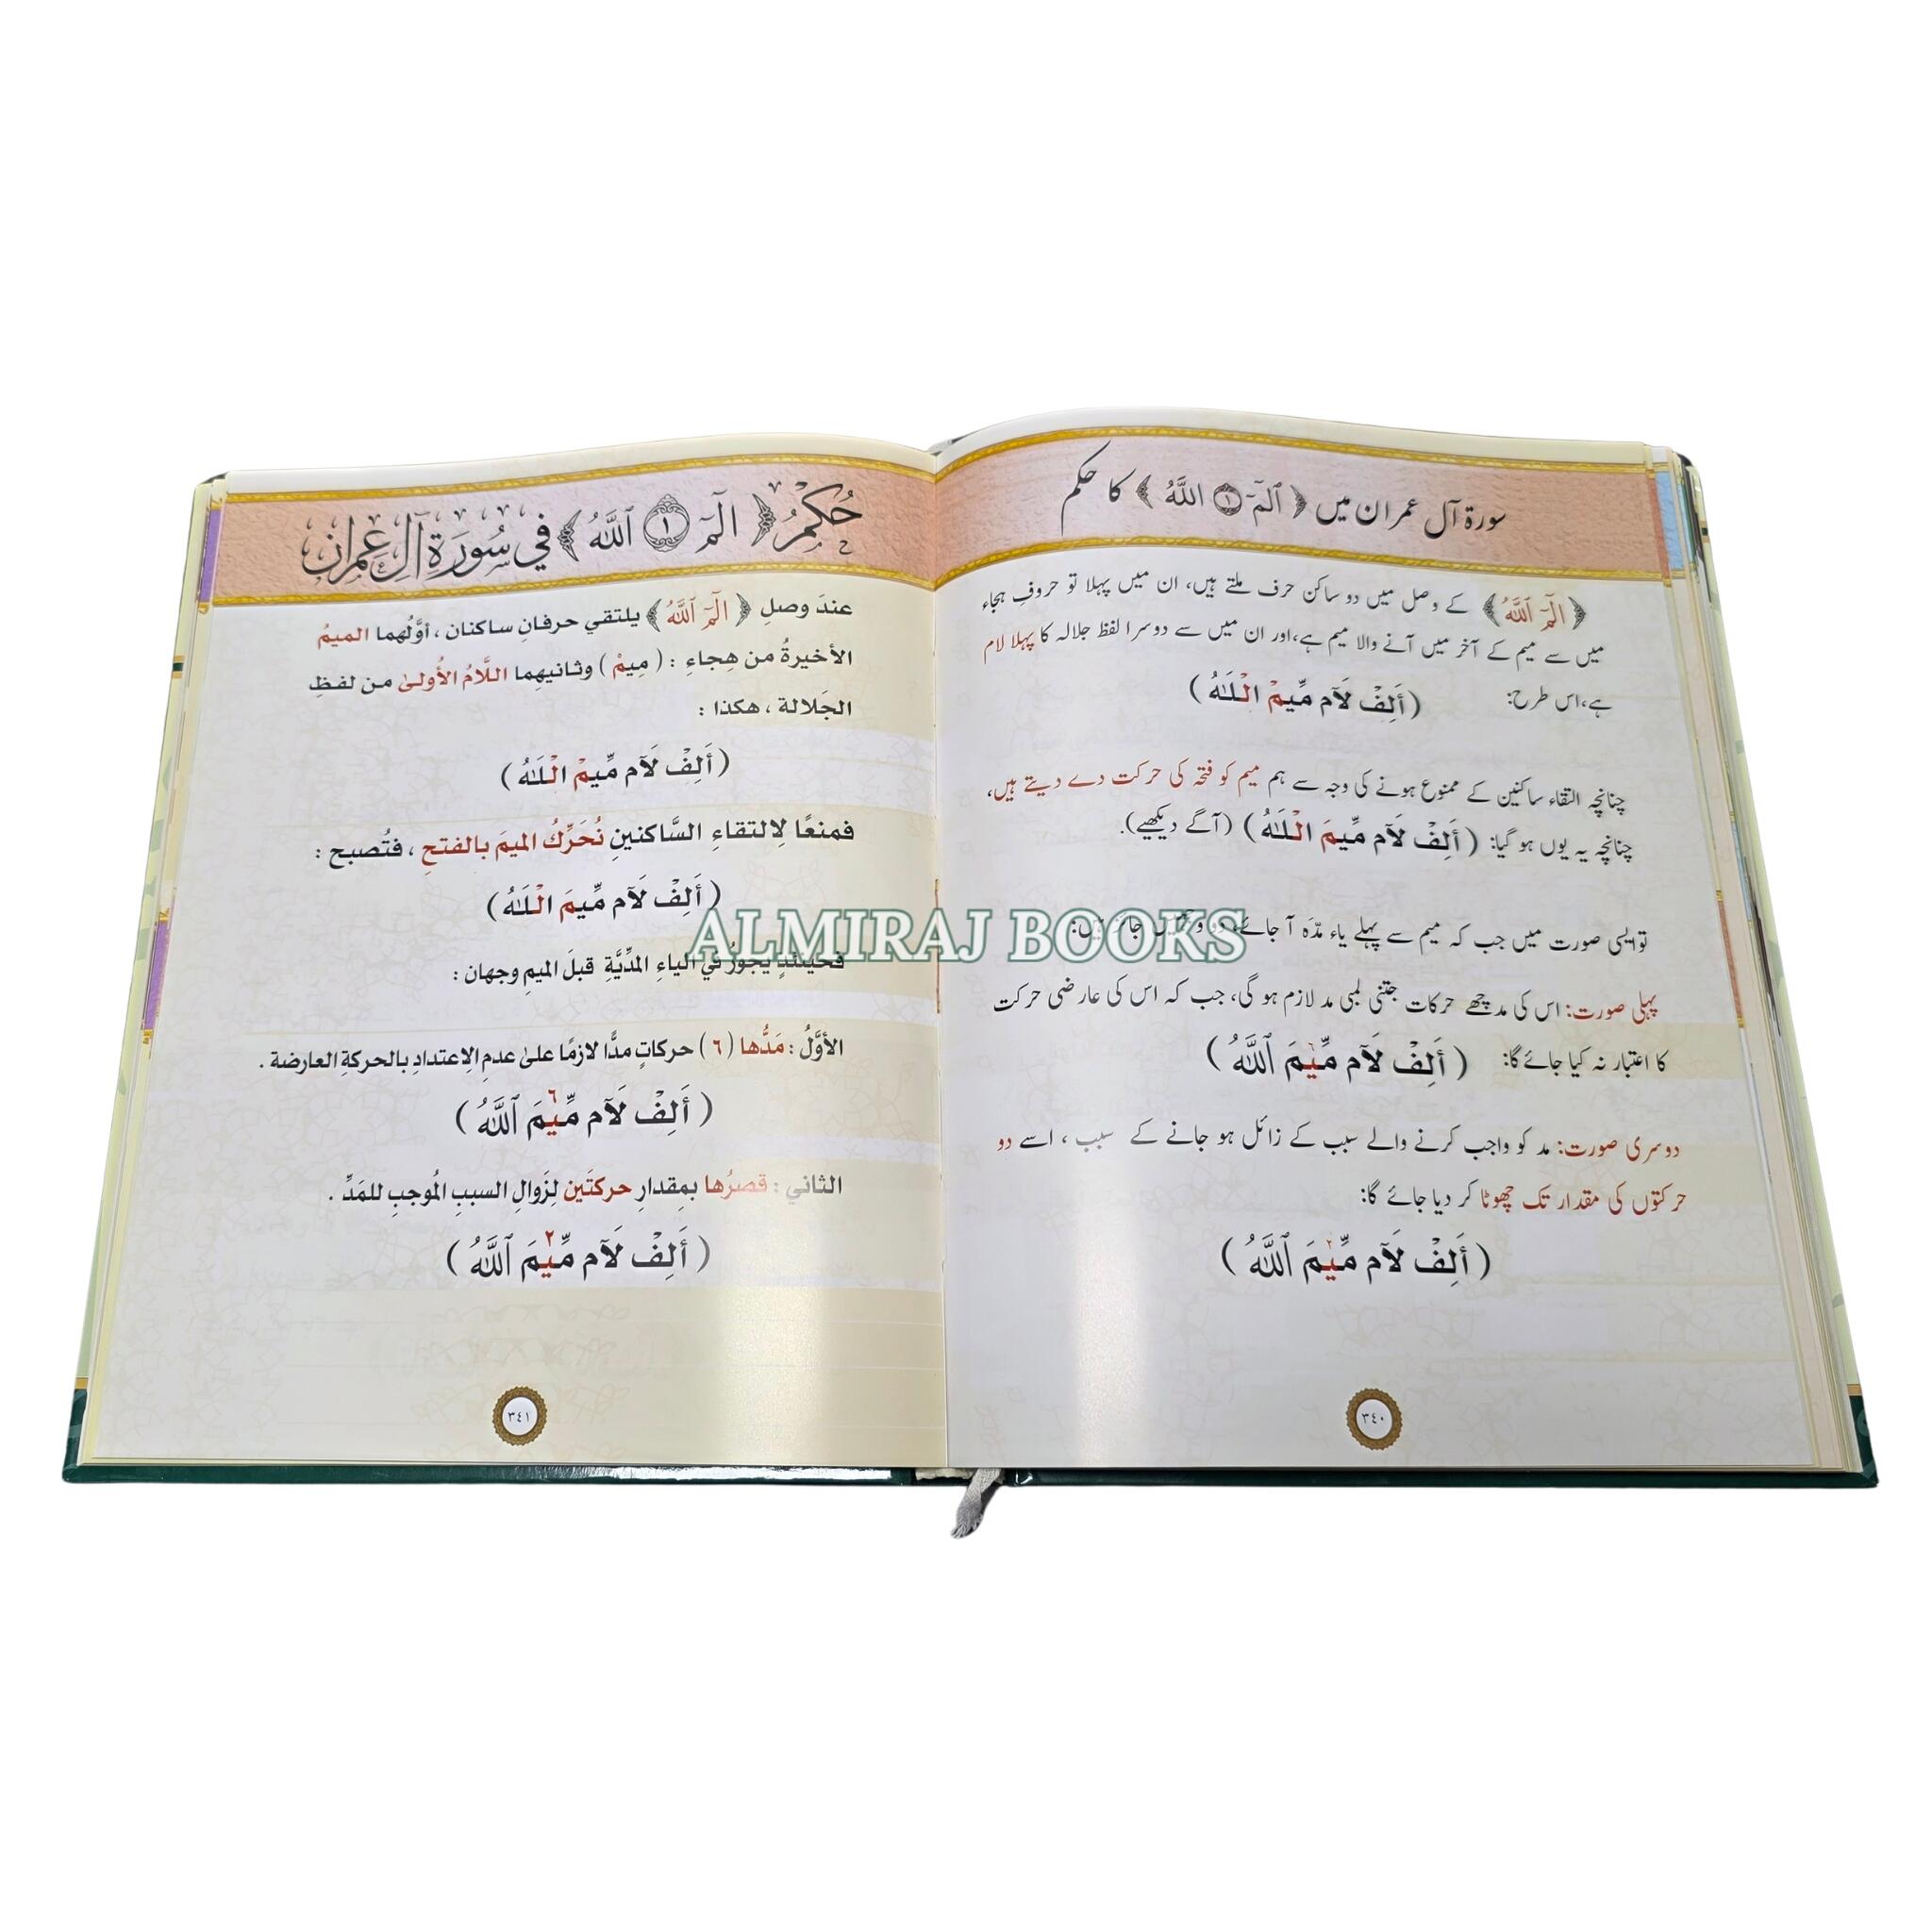 سورۃ آل عمران میں ﴿ الٓمٓ ١ اللَّهُ ﴾ کا حکم
﴿ الٓمٓ ٱللَّهُ ﴾ کے وصل میں دو ساکن حرف ملتے ہیں، ان میں پہلا تو حروفِ ہجاء
میں سے میم کے آخر میں آنے والا میم ہے،اور ان میں سے دوسرا لفظ جلالہ کا پہلا لام
ہے،اس طرح: (أَلِفْ لَآم مِّيمْ الْلَـٰهُ)
چنانچہ التقاء ساکنین کے ممنوع ہونے کی وجہ سے ہم میم کو فتحہ کی حرکت دے دیتے ہیں،
چنانچہ یہ یوں ہو گیا: (أَلِفْ لَآم مِّيمَ الْلَـٰهُ) (آگے دیکھیے).
تو ایسی صورت میں جب کہ میم سے پہلے یاء مدّہ آ جائے، دو وجہیں جائز ہیں:
پہلی صورت: اس کی مد چھے حرکات جتنی لمبی مد لازم ہو گی، جب کہ اس کی عارضی حرکت
کا اعتبار نہ کیا جائے گا: (أَلِفْ لَآم مِّيمَ ٱللَّهُ)
دوسری صورت: مد کو واجب کرنے والے سبب کے زائل ہو جانے کے سبب ، اسے دو
حرکتوں کی مقدار تک چھوٹا کر دیا جائے گا:
(أَلِفْ لَآم مِّيمَ ٱللَّهُ)
٣٤٠
حُكْمُ ﴿ الٓمٓ ١ ٱللَّهُ ﴾ في سُورَةِ آلِ عِمران
عندَ وصلِ ﴿ الٓمٓ ٱللَّهُ ﴾ يلتقي حرفانِ ساكنان ، أوَّلُهما الميمُ
الأخيرةُ من هِجاءِ : ( مِيمْ ) وثانيهِما اللَّامُ الأُولىٰ من لفظِ
الجَلالة ، هكذا :
(أَلِفْ لَآم مِّيمْ الْلَـٰهُ)
فمنعًا لِالتقاءِ السَّاكنينِ نُحَرِّكُ الميمَ بالفتحِ ، فتُصبح :
(أَلِفْ لَآم مِّيمَ الْلَـٰهُ)
فحينئذٍ يجوزُ في الياءِ المدِّيَّةِ قبلَ الميمِ وجهان :
الأوَّلُ : مَدُّها (٦) حركاتٍ مدًّا لازمًا علىٰ عدمِ الاِعتدادِ بالحركةِ العارضة .
(أَلِفْ لَآم مِّيمَ ٱللَّهُ) ٦
الثاني : قصرُها بمِقدارِ حركتَين لِزَوالِ السببِ المُوجبِ للمَدِّ .
(أَلِفْ لَآم مِّيمَ ٱللَّهُ) ٢
٣٤١
ALMIRAJ BOOKS